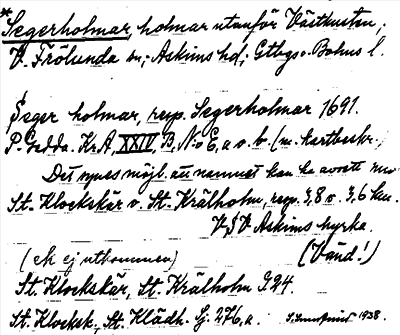 * Segerholmar holmar utanför Västkusten,
V. Frölunda sn; Askims hd; Gtbgs o Bohus l.
Seger holmar, resp. Segerholmar 1691.
P. Gedda. Kr.A, XXIV, B, N:o E, a o. b (m. kartbeskr.,
Det synes möjl. att namnet kan ha avsett nuv
St. Klockskär o. St. Krälholm, resp. 3,8 o 3,6 km.
V S V Askims kyrka.
(ek ej utkommen) (Vänd!)
St. Klockskär, St. Krälholm G24.
St. Klocksk., St. Klädh. Gj. 276, a. 1938.